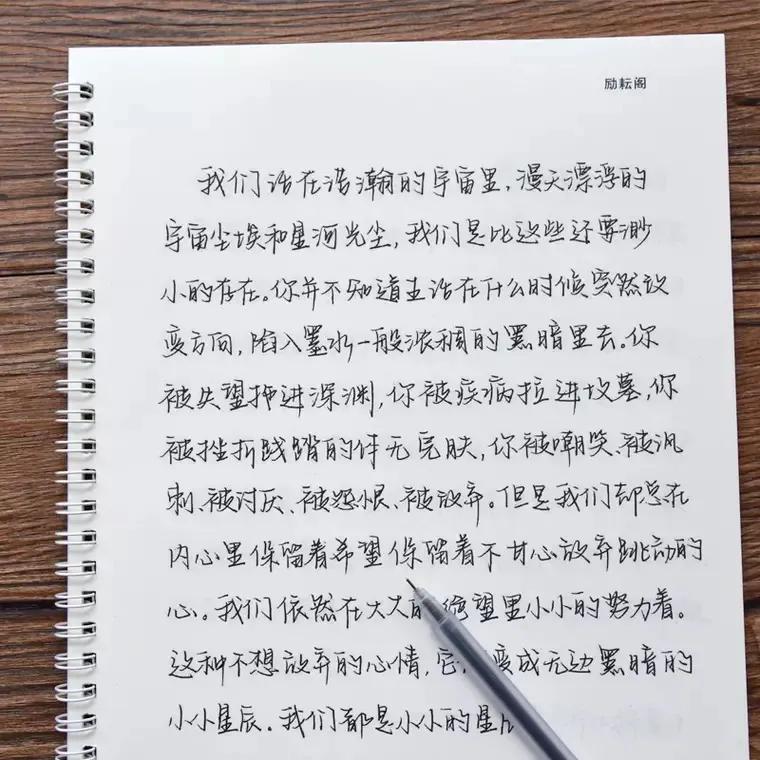 励耘阁
我们活在浩瀚的宇宙里,漫天漂浮的
宇宙尘埃和星河光尘,我们是比这些还要渺
小的存在。你并不知道生活在什么时候突然改
变方向,陷入墨水一般浓稠的黑暗里去。你
被失望拖进深渊,你被疾病拉进坟墓,你
被挫折践踏的体无完肤,你被嘲笑、被讽
刺、被讨厌、被怨恨、被放弃。但是我们却总在
内心里保留着希望保留着不甘心放弃跳动的
心。我们依然在大大的绝望里小小的努力着。
这种不想放弃的心情,它变成无边黑暗的
小小星辰。我们都是小小的星